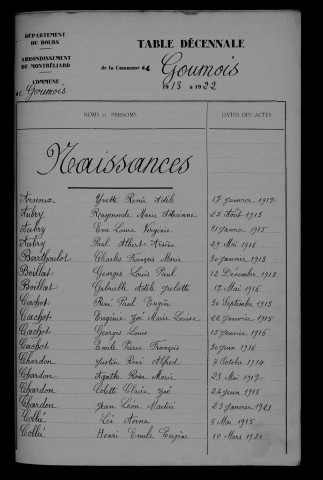 DÉPARTEMENT
DU DOUBS
ARRONDISSEMENT
DE MONTBÉLIARD
COMMUNE
de Goumois
TABLE DÉCENNALE
de la Commune de Goumois
1913 à 1922
NOMS et PRÉNOMS
DATES DES ACTES
Naissances
Arnoux Yvette Renée Adèle 17 janvier 1917
Aubry Raymonde Marie Adrienne 25 Août 1913
Aubry Eva Laure Virginie 31 janvier 1915
Aubry Paul Albert 29 Mai 1918
Barthoulot Charles François Marie 30 janvier 1913
Boillat Georges Louis Paul 12 Décembre 1913
Boillat Gabrielle Adèle 17 Mai 1916
Cachot René Paul Eugène 30 Septembre 1913
Cachot Eugénie Zoé Marie Louise 22 janvier 1915
Cachot Georges Louis 15 janvier 1916
Cachot Emile Pierre François 30 juin 1916
Chardon Justin René Alfred 7 Octobre 1914
Chardon Agathe Rosa Marie 23 Mai 1917
Chardon Colette Claire Zoé 24 juin 1918
Chardon Jean Léon Martin 23 janvier 1921
Collié Léa Anna 8 Mai 1915
Collié Henri Emile Eugène 10 Mars 1920